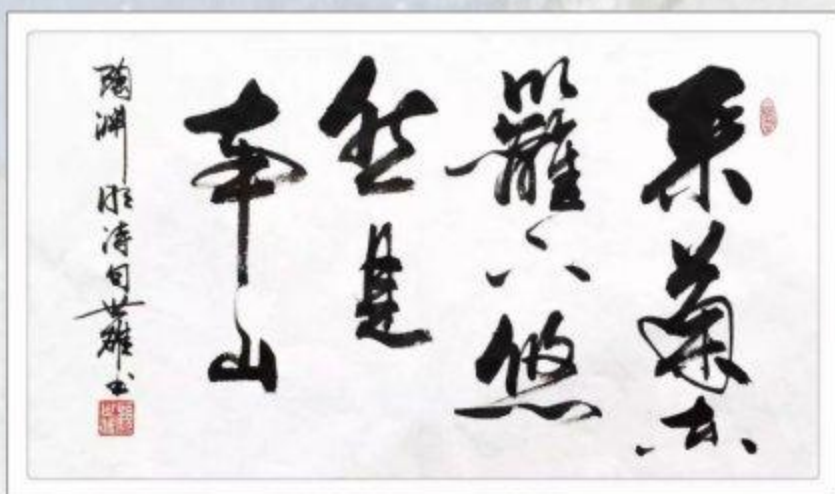 采菊东
籬下悠
然見
南山
陶渊明诗句世雄书